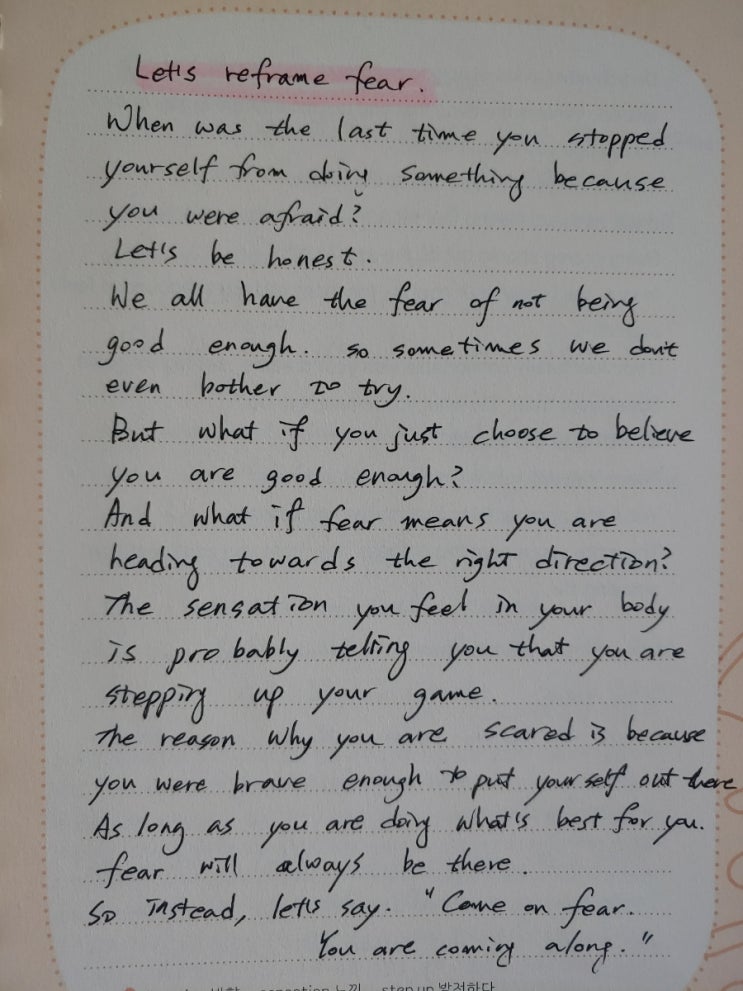 Let's reframe fear.
When was the last time you stopped
yourself from doing something because
you were afraid?
Let's be honest.
We all have the fear of not being
good enough. so sometimes we don't
even bother to try.
But what if you just choose to believe
you are good enough?
And what if fear means you are
heading towards the right direction?
The sensation you feel in your body
is probably telling you that you are
stepping up your game.
The reason why you are scared is because
you were brave enough to put yourself out there
As long as you are doing what's best for you.
fear will always be there.
So instead, let's say. "Come on fear.
You are coming along."
sensation 느낌 step up 발전하다